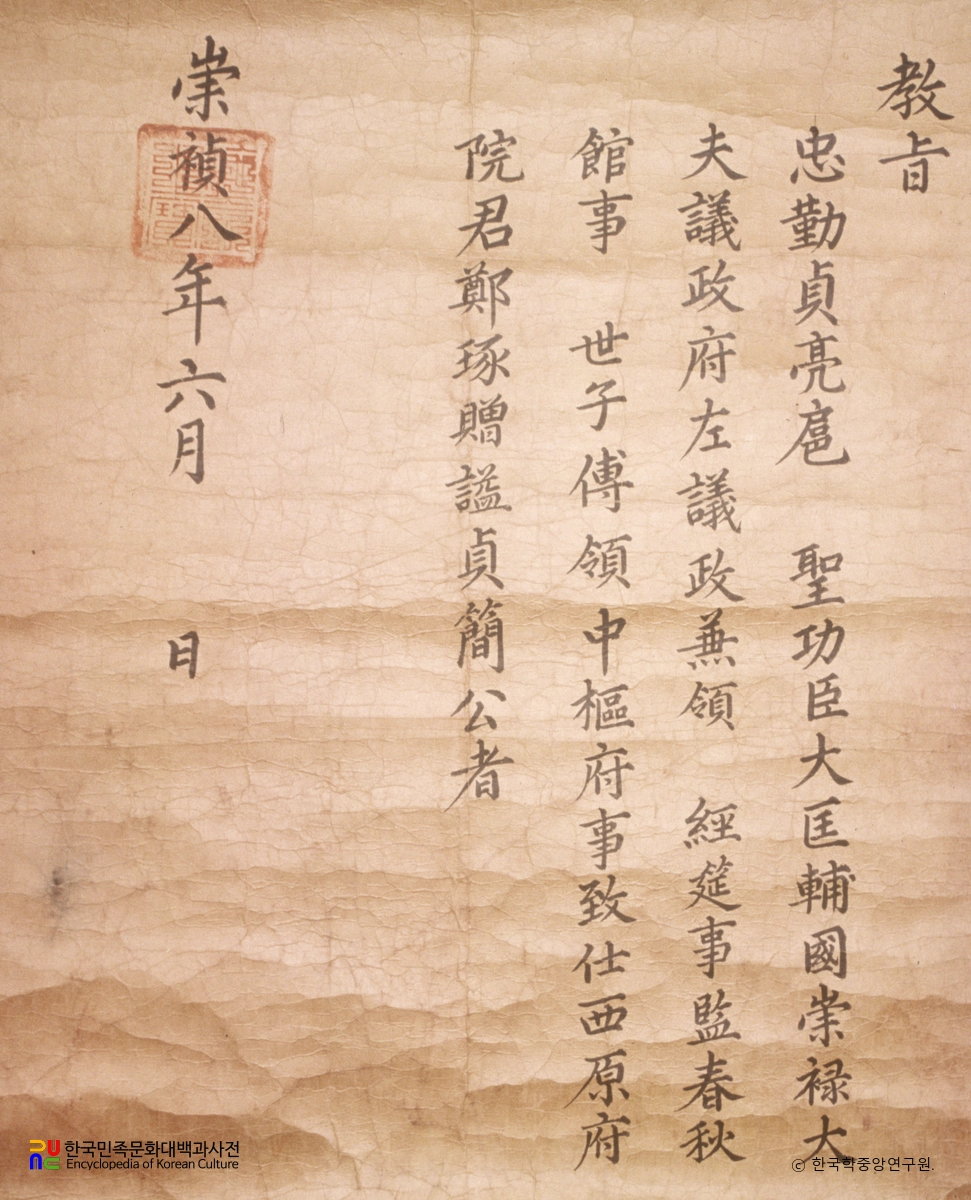 教旨
忠勤貞亮扈 聖功臣大匡輔國崇禄大
夫議政府左議政兼領 經筵事監春秋
館事 世子傅領中樞府事致仕西原府
院君鄭琢贈謚貞簡公者
崇禎八年六月 日
한국민족문화대백과사전
Encyclopedia of Korean Culture
ⓒ 한국학중앙연구원.